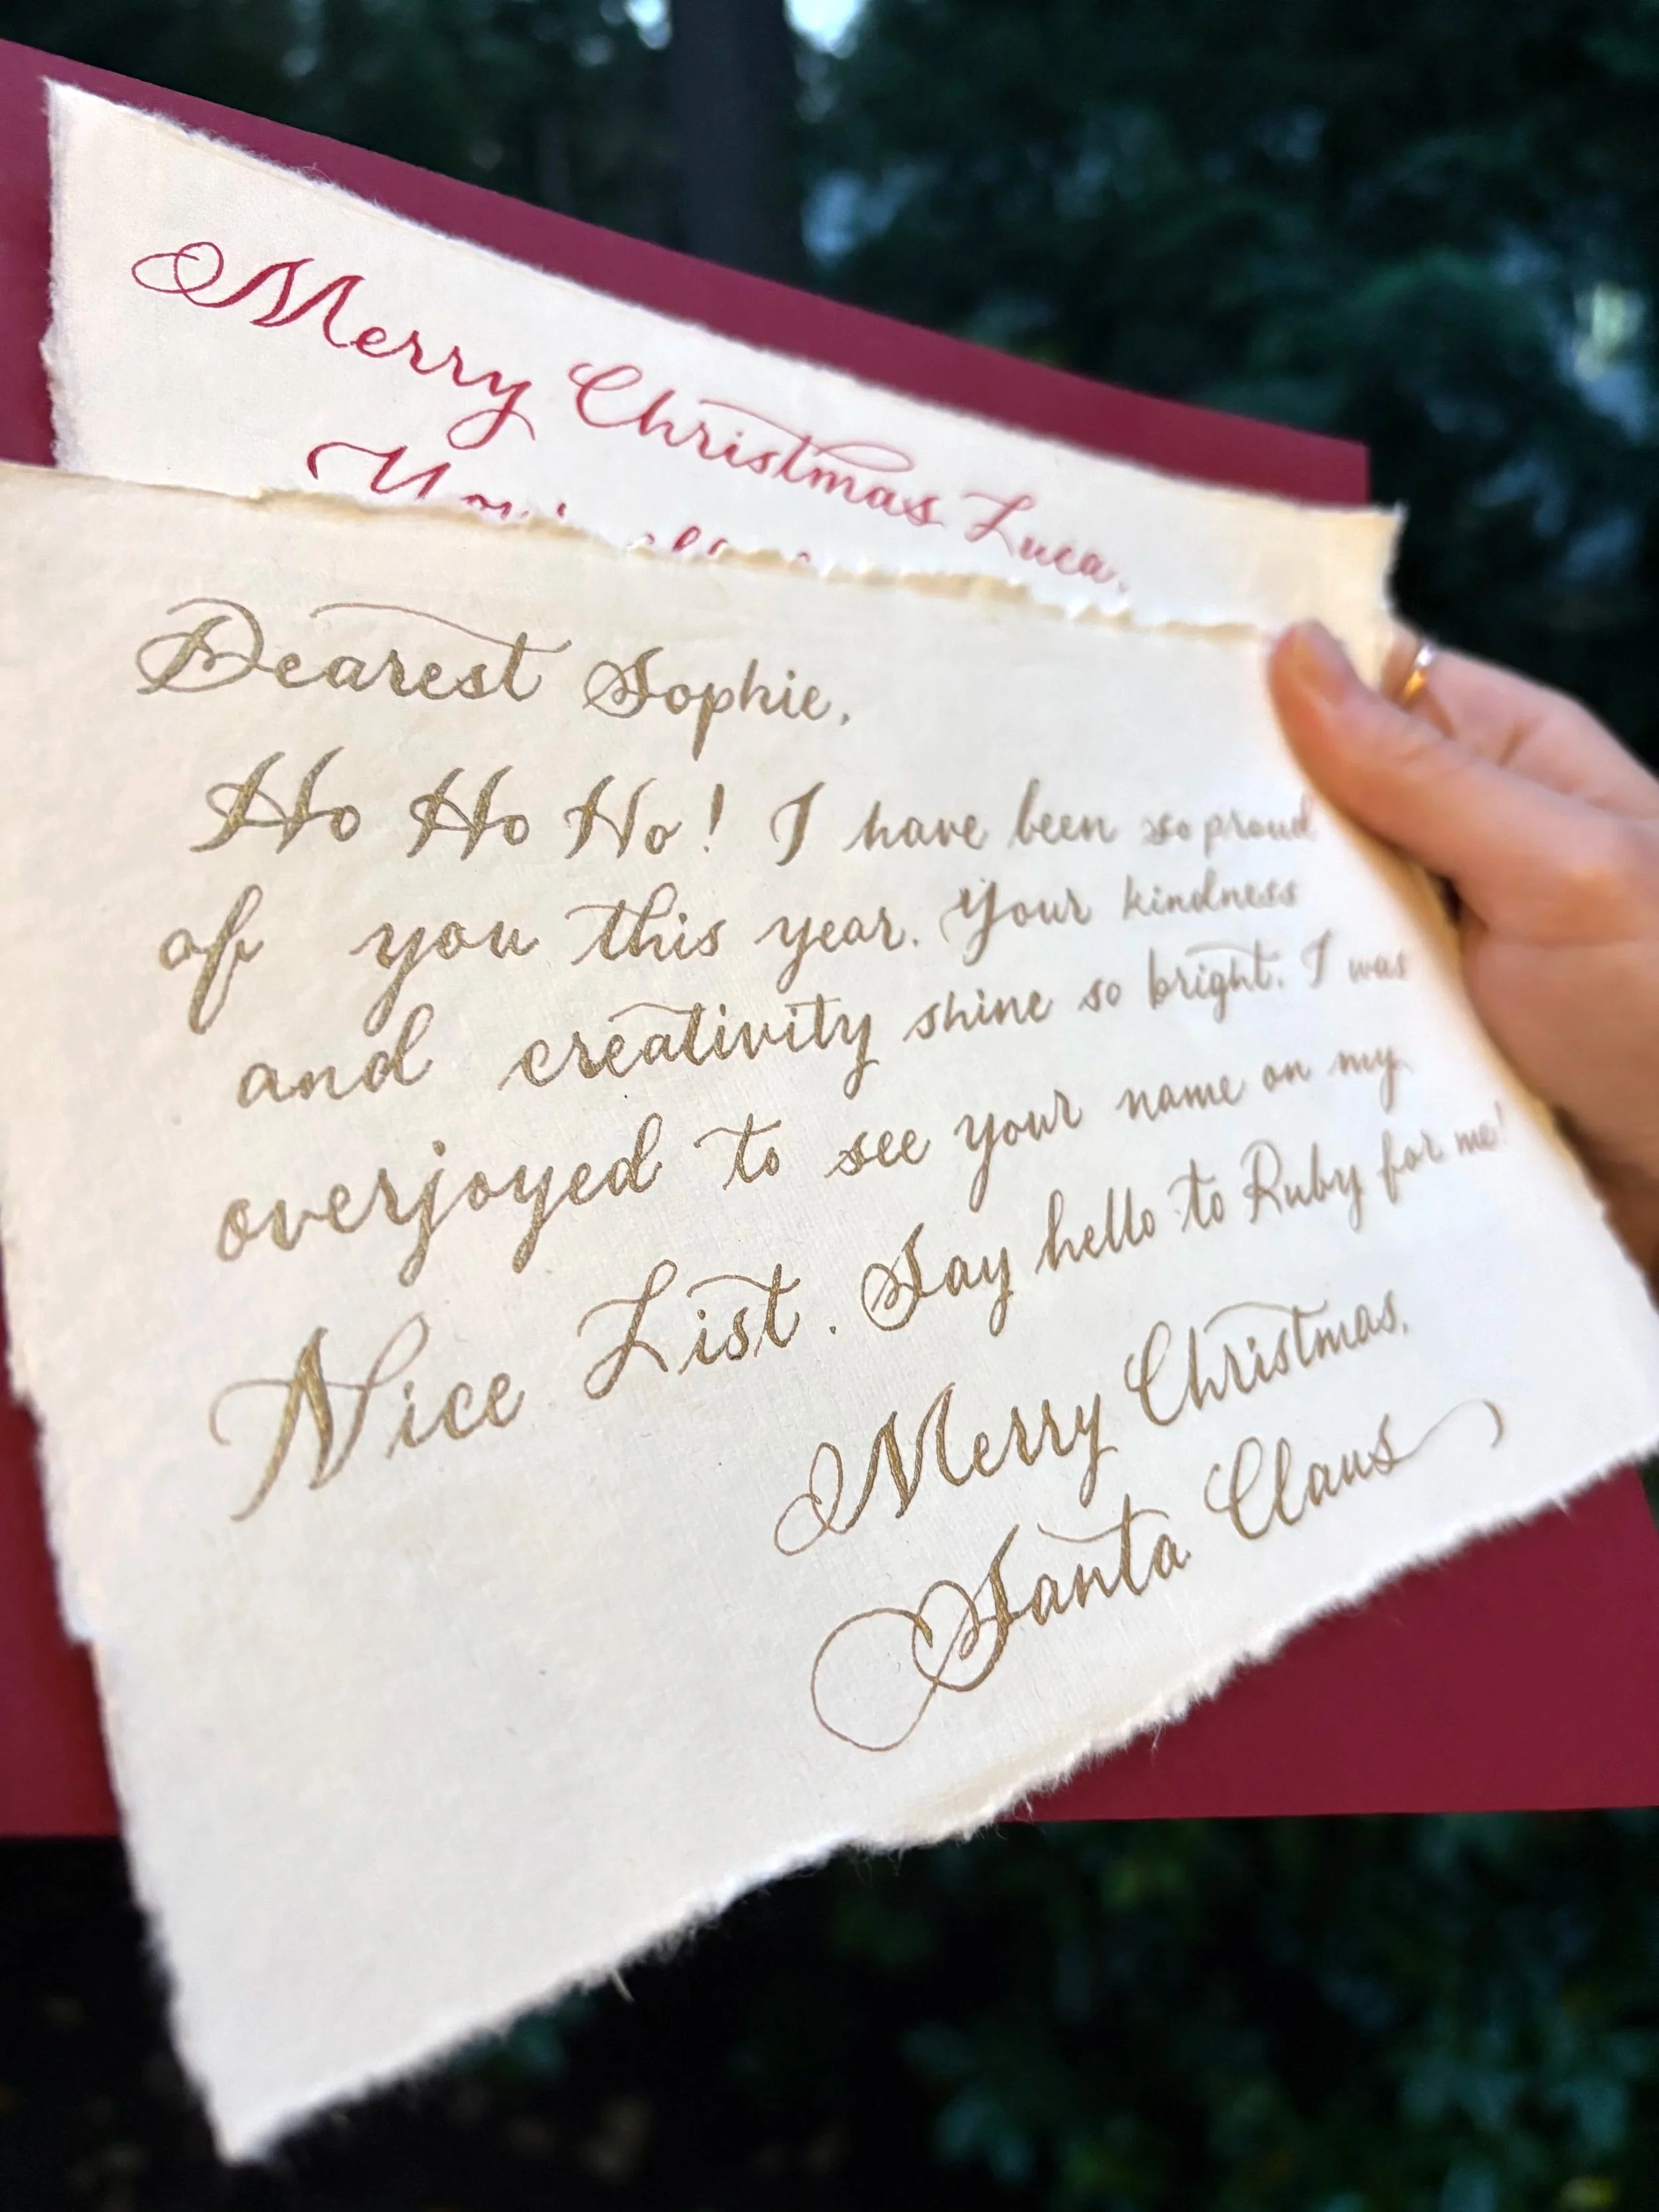 Merry Christmas Luca,
Dearest Sophie,
Ho Ho Ho! I have been so proud
of you this year. Your kindness
and creativity shine so bright. I was
overjoyed to see your name on my
Nice List. Say hello to Ruby for me!
Merry Christmas,
Santa Claus